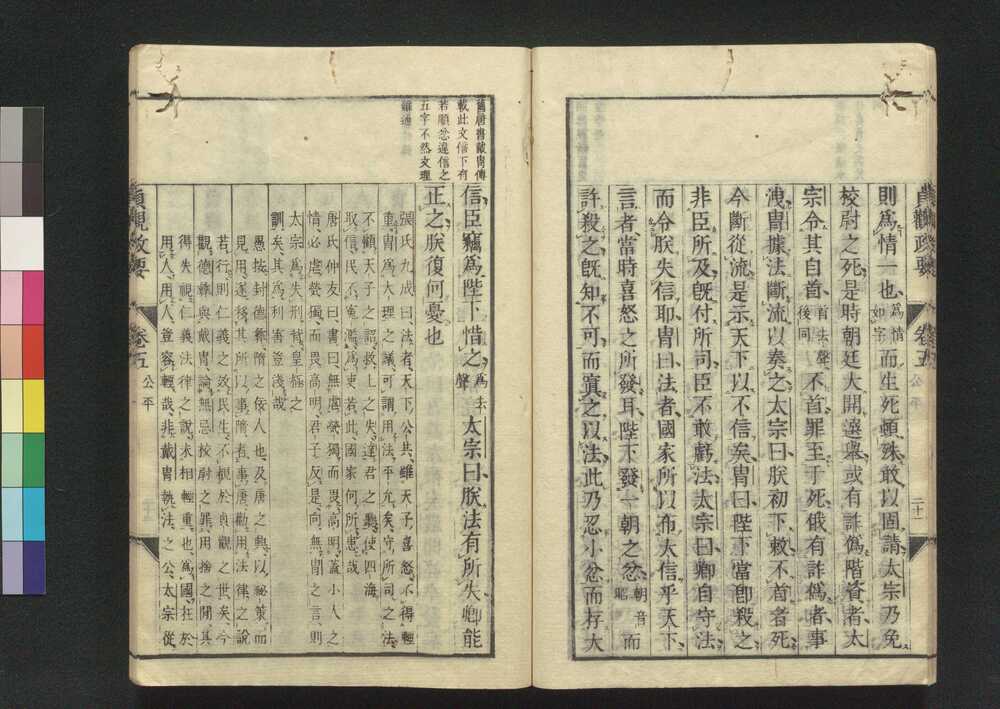 貞觀政要
卷五
公平
二十一
則爲情一也爲情如字而生死頓殊敢以固請太宗乃免
校尉之死是時朝廷大開選舉或有詐僞階資者太
宗令其自首首去聲後同不首罪至于死俄有詐僞者事
洩冑據法斷流以奏之太宗曰朕初下敕不首者死
今斷從流是示天下以不信矣冑曰陛下當即殺之
非臣所及既付所司臣不敢虧法太宗曰卿自守法
而令朕失信耶冑曰法者國家所以布大信乎天下
言者當時喜怒之所發耳陛下發一朝之忿朝音昭而
許殺之既知不可而寘之以法此乃忍小忿而存大
舊唐書戴冑傳
載此文信下有
若順忿違信之
五字不然文理
難通
信臣竊爲陛下惜之爲去聲太宗曰朕法有所失卿能
正之朕復何憂也
張氏九成曰法者天下公共雖天子喜怒不得輕
重冑爲大理之議可謂用法平允矣守所司之法
不顧天子之詔救上之失達君之聽使四海
取信民不冤濫爲吏若此國家何所患哉
唐氏仲友曰書曰無虐煢獨而畏高明蓋小人之
情必虐煢獨而畏高明君子反是向無冑之言則
太宗爲失刑背皇極之
訓矣其爲利害豈淺哉
愚按封德彝隋之佞人也及唐之興以祕策而
見用遂移其所以事隋者事唐勸用法律之說
若行則仁義之效民生不覩於貞觀之世矣今
觀德彝與戴冑論無忌按尉之罪用捨之閒其
得失視仁義法律之說末相輕重也爲國在於
用人用人豈容輕哉非戴冑執法之公太宗從
貞觀政要
卷五
公平